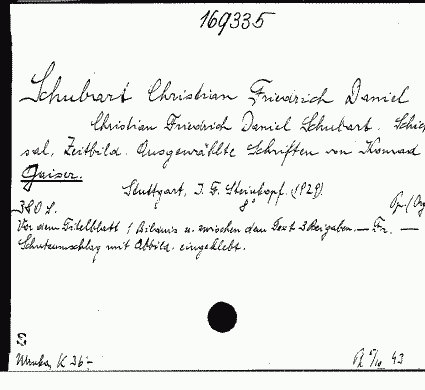 169335
Schubart Christian Friedrich Daniel
Christian Friedrich Daniel Schubart. Schick
sal, Zeitbild. Ausgewählte Schriften von Konrad
Gaiser.
Stuttgart, J. F. Steinkopf. (1929)
380 S. 8°
Vor dem Titelblatt 1 Bildnis u. zwischen dem Text 3 Beigaben. — Fr. —
Schutzumschlag mit Abbild. eingeklebt.
K 36:-
43